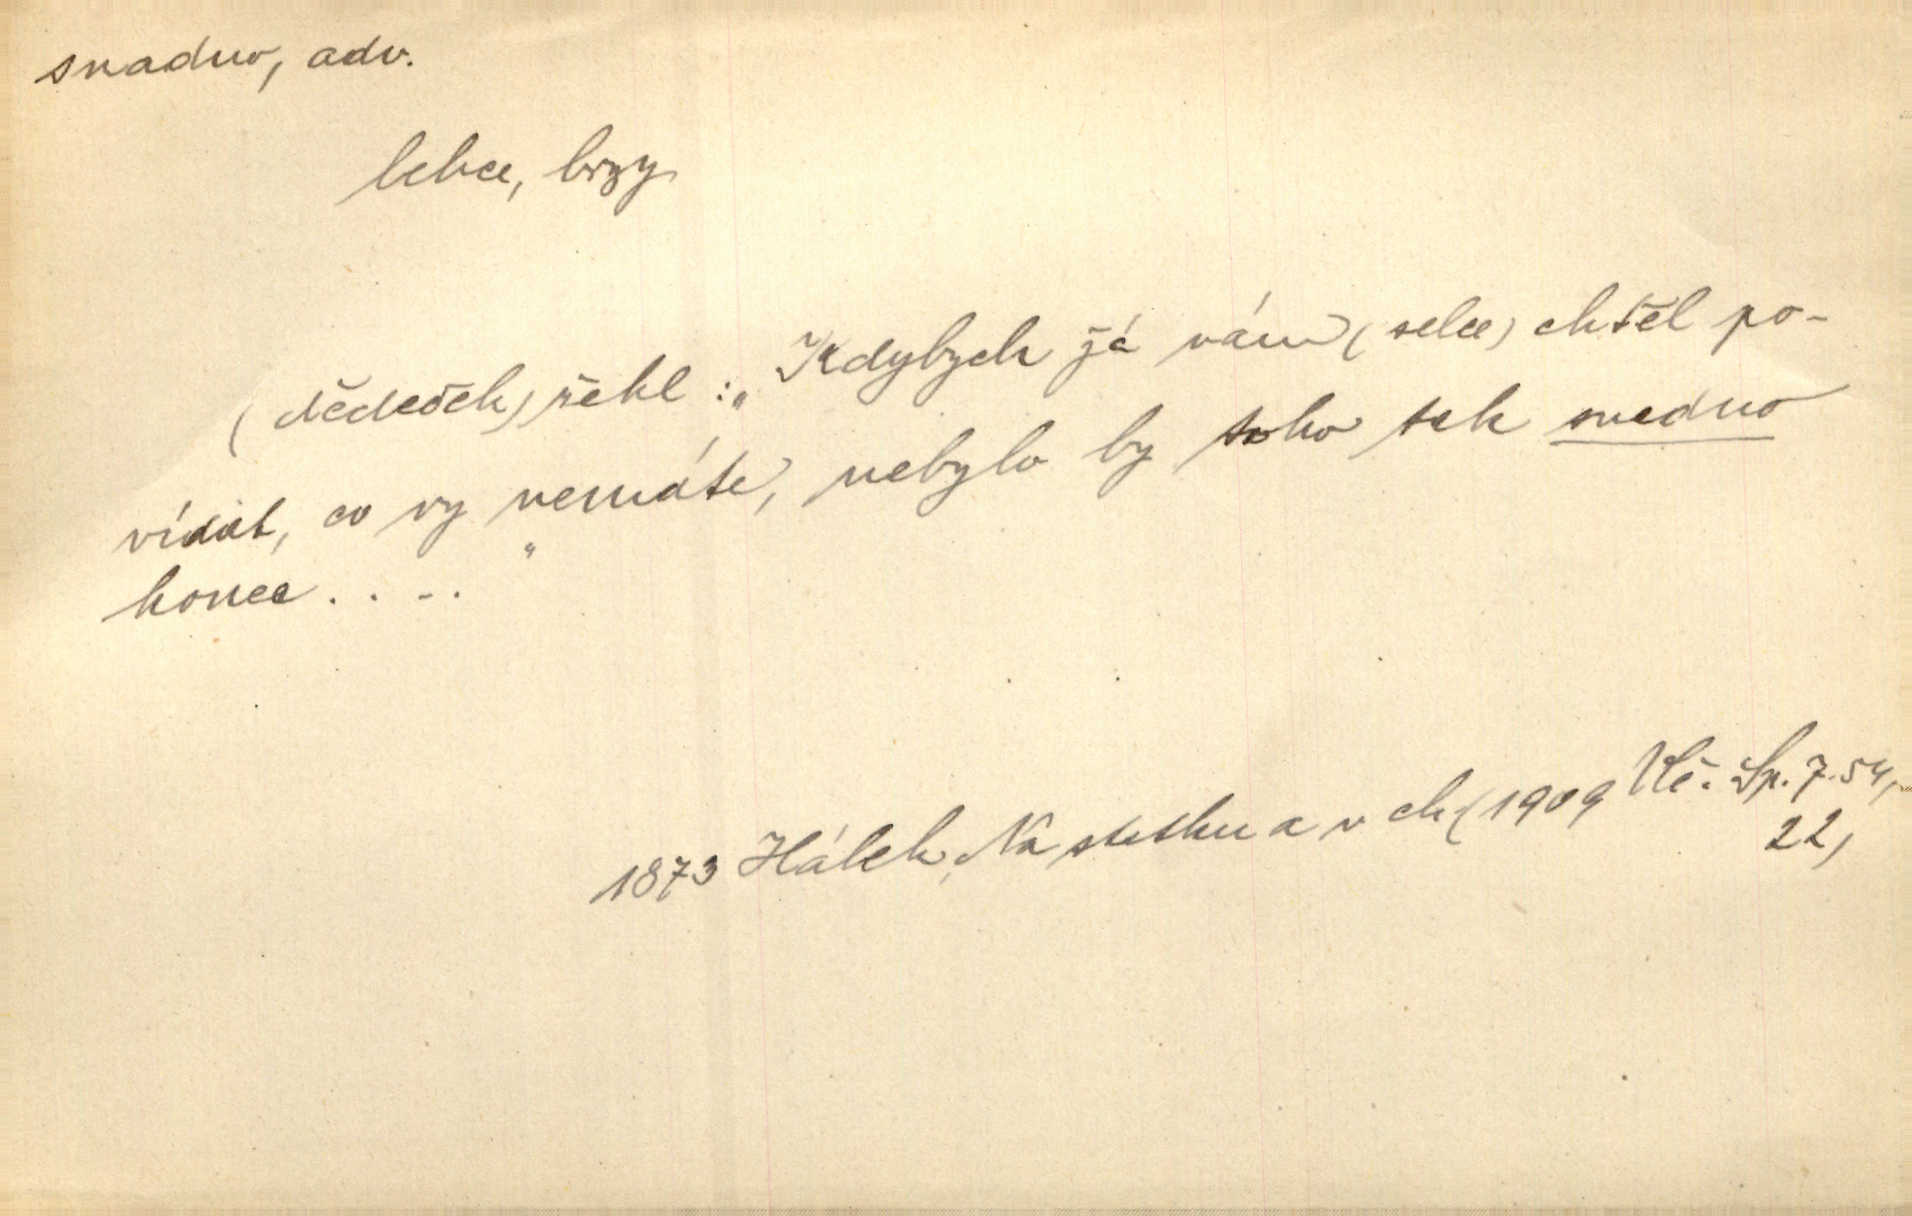 snadno, adv.
lehce, brzy
(dědeček) řekl: „Kdybych já vám (selce) chtěl po-
vídat, co vy nemáte, nebylo by toho tak snadno
konce . . . . "
1873 Hálek, Na statku a v ch (1909 Vlč. Sp. 7. 54,
22,